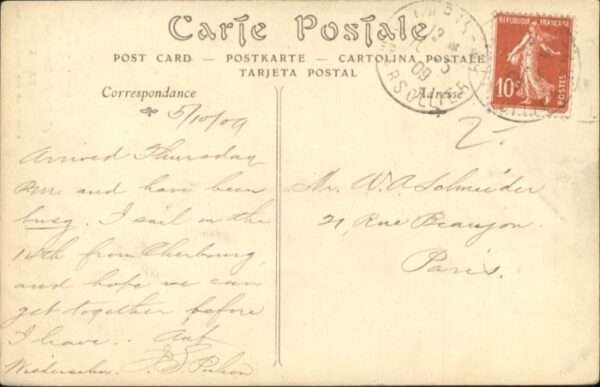 Carte Postale
POST CARD — POSTKARTE — CARTOLINA POSTALE
TARJETA POSTAL
Correspondance
Adresse
REPUBLIQUE FRANÇAISE
10c
POSTES
09
5/10/09
Arrived Thursday
and have been
busy. I sail on the
from Cherbourg,
and hope we can
get together before
I leave. Auf
Wiedersehn.
Mr. W. A. Schneider
21, Rue Beaujon.
Paris.